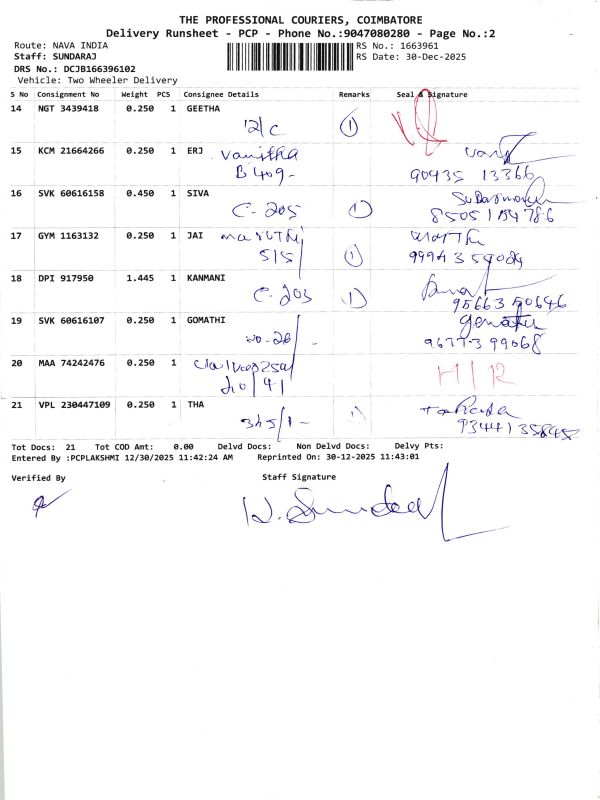 THE PROFESSIONAL COURIERS, COIMBATORE
Delivery Runsheet - PCP - Phone No.:9047080280 - Page No.:2
Route: NAVA INDIA
RS No.: 1663961
Staff: SUNDARAJ
RS Date: 30-Dec-2025
DRS No.: DCJB166396102
Vehicle: Two Wheeler Delivery
S No Consignment No Weight PCS Consignee Details Remarks Seal & Signature
14 NGT 3439418 0.250 1 GEETHA
12/C 1
15 KCM 21664266 0.250 1 ERJ Vanitha
B 409- 90435 13366
16 SVK 60616158 0.450 1 SIVA
C-205 1
17 GYM 1163132 0.250 1 JAI Maruthi
515 1
18 DPI 917950 1.445 1 KANMANI
C-203 1
19 SVK 60616107 0.250 1 GOMATHI Gomathi
NO-26/- 96773 99068
20 MAA 74242476 0.250 1
H/R
21 VPL 230447109 0.250 1 THA
345/1-
Tot Docs: 21 Tot COD Amt: 0.00 Delvd Docs: Non Delvd Docs: Delvy Pts:
Entered By :PCPLAKSHMI 12/30/2025 11:42:24 AM Reprinted On: 30-12-2025 11:43:01
Verified By Staff Signature